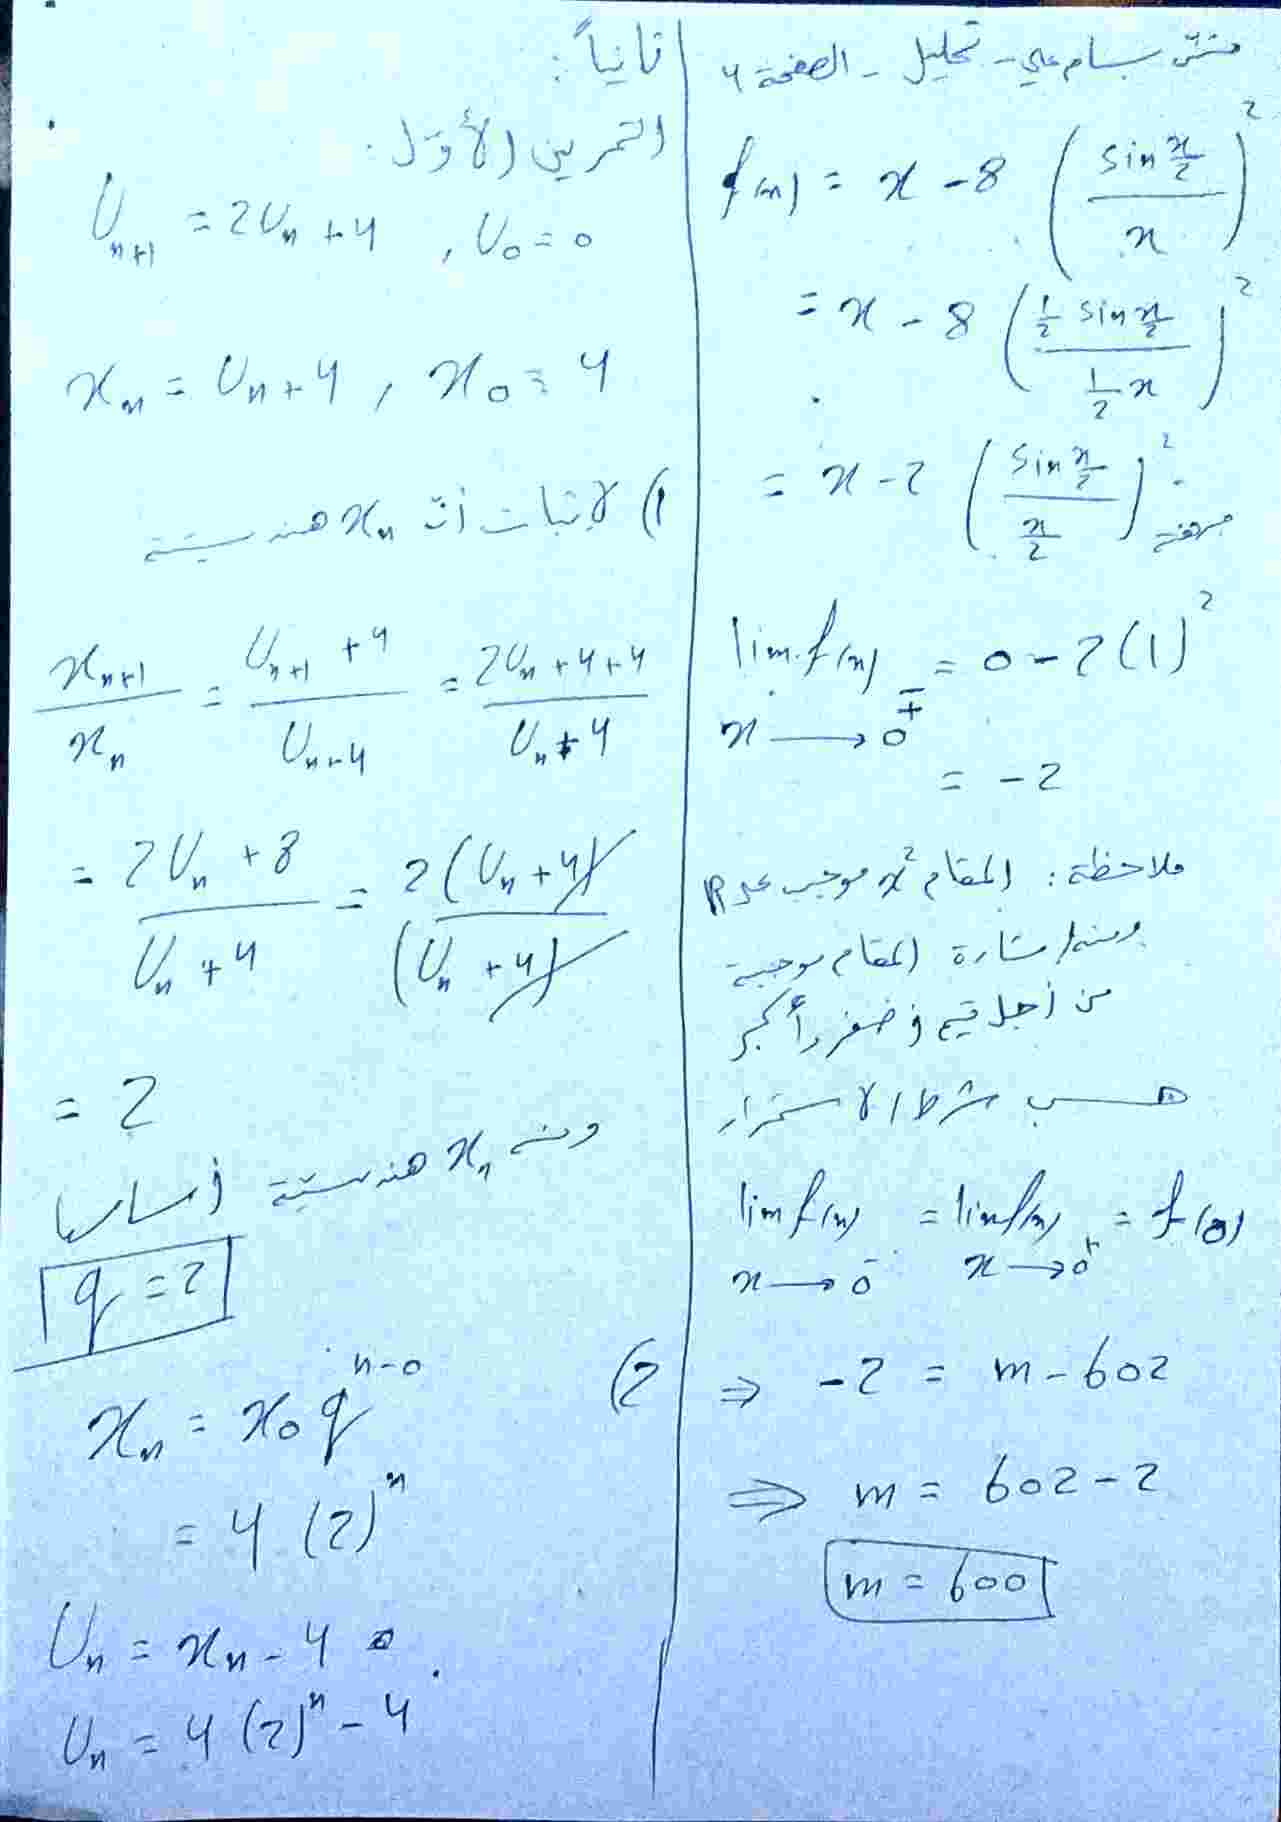 بسام علي - تحليل - الصفحة 4
f(x) = x - 8 (sin x/2 / x)²
= x - 8 (1/2 sin x/2 / 1/2 x)²
= x - 2 (sin x/2 / x/2)²
lim f(x) = 0 - 2(1)²
x → 0∓
= -2
ملاحظة: المقام x² موجب على R
ومنه إشارة المقام موجبة
من أجل قيم أصغر وأكبر
حسب شرط الاستمرار
lim f(x) = lim f(x) = f(0)
x → 0⁻ x → 0⁺
⇒ -2 = m - 602
⇒ m = 602 - 2
m = 600
ثانياً:
التمرين الأول.
Uₙ₊₁ = 2Uₙ + 4 , U₀ = 0
xₙ = Uₙ + 4 , x₀ = 4
1) لإثبات أن xₙ هندسية
xₙ₊₁ / xₙ = Uₙ₊₁ + 4 / Uₙ + 4 = 2Uₙ + 4 + 4 / Uₙ + 4
= 2Uₙ + 8 / Uₙ + 4 = 2(Uₙ + 4) / (Uₙ + 4)
= 2
ومنه xₙ هندسية أساسها
q = 2
2) xₙ = x₀ qⁿ⁻⁰
= 4 (2)ⁿ
Uₙ = xₙ - 4
Uₙ = 4 (2)ⁿ - 4